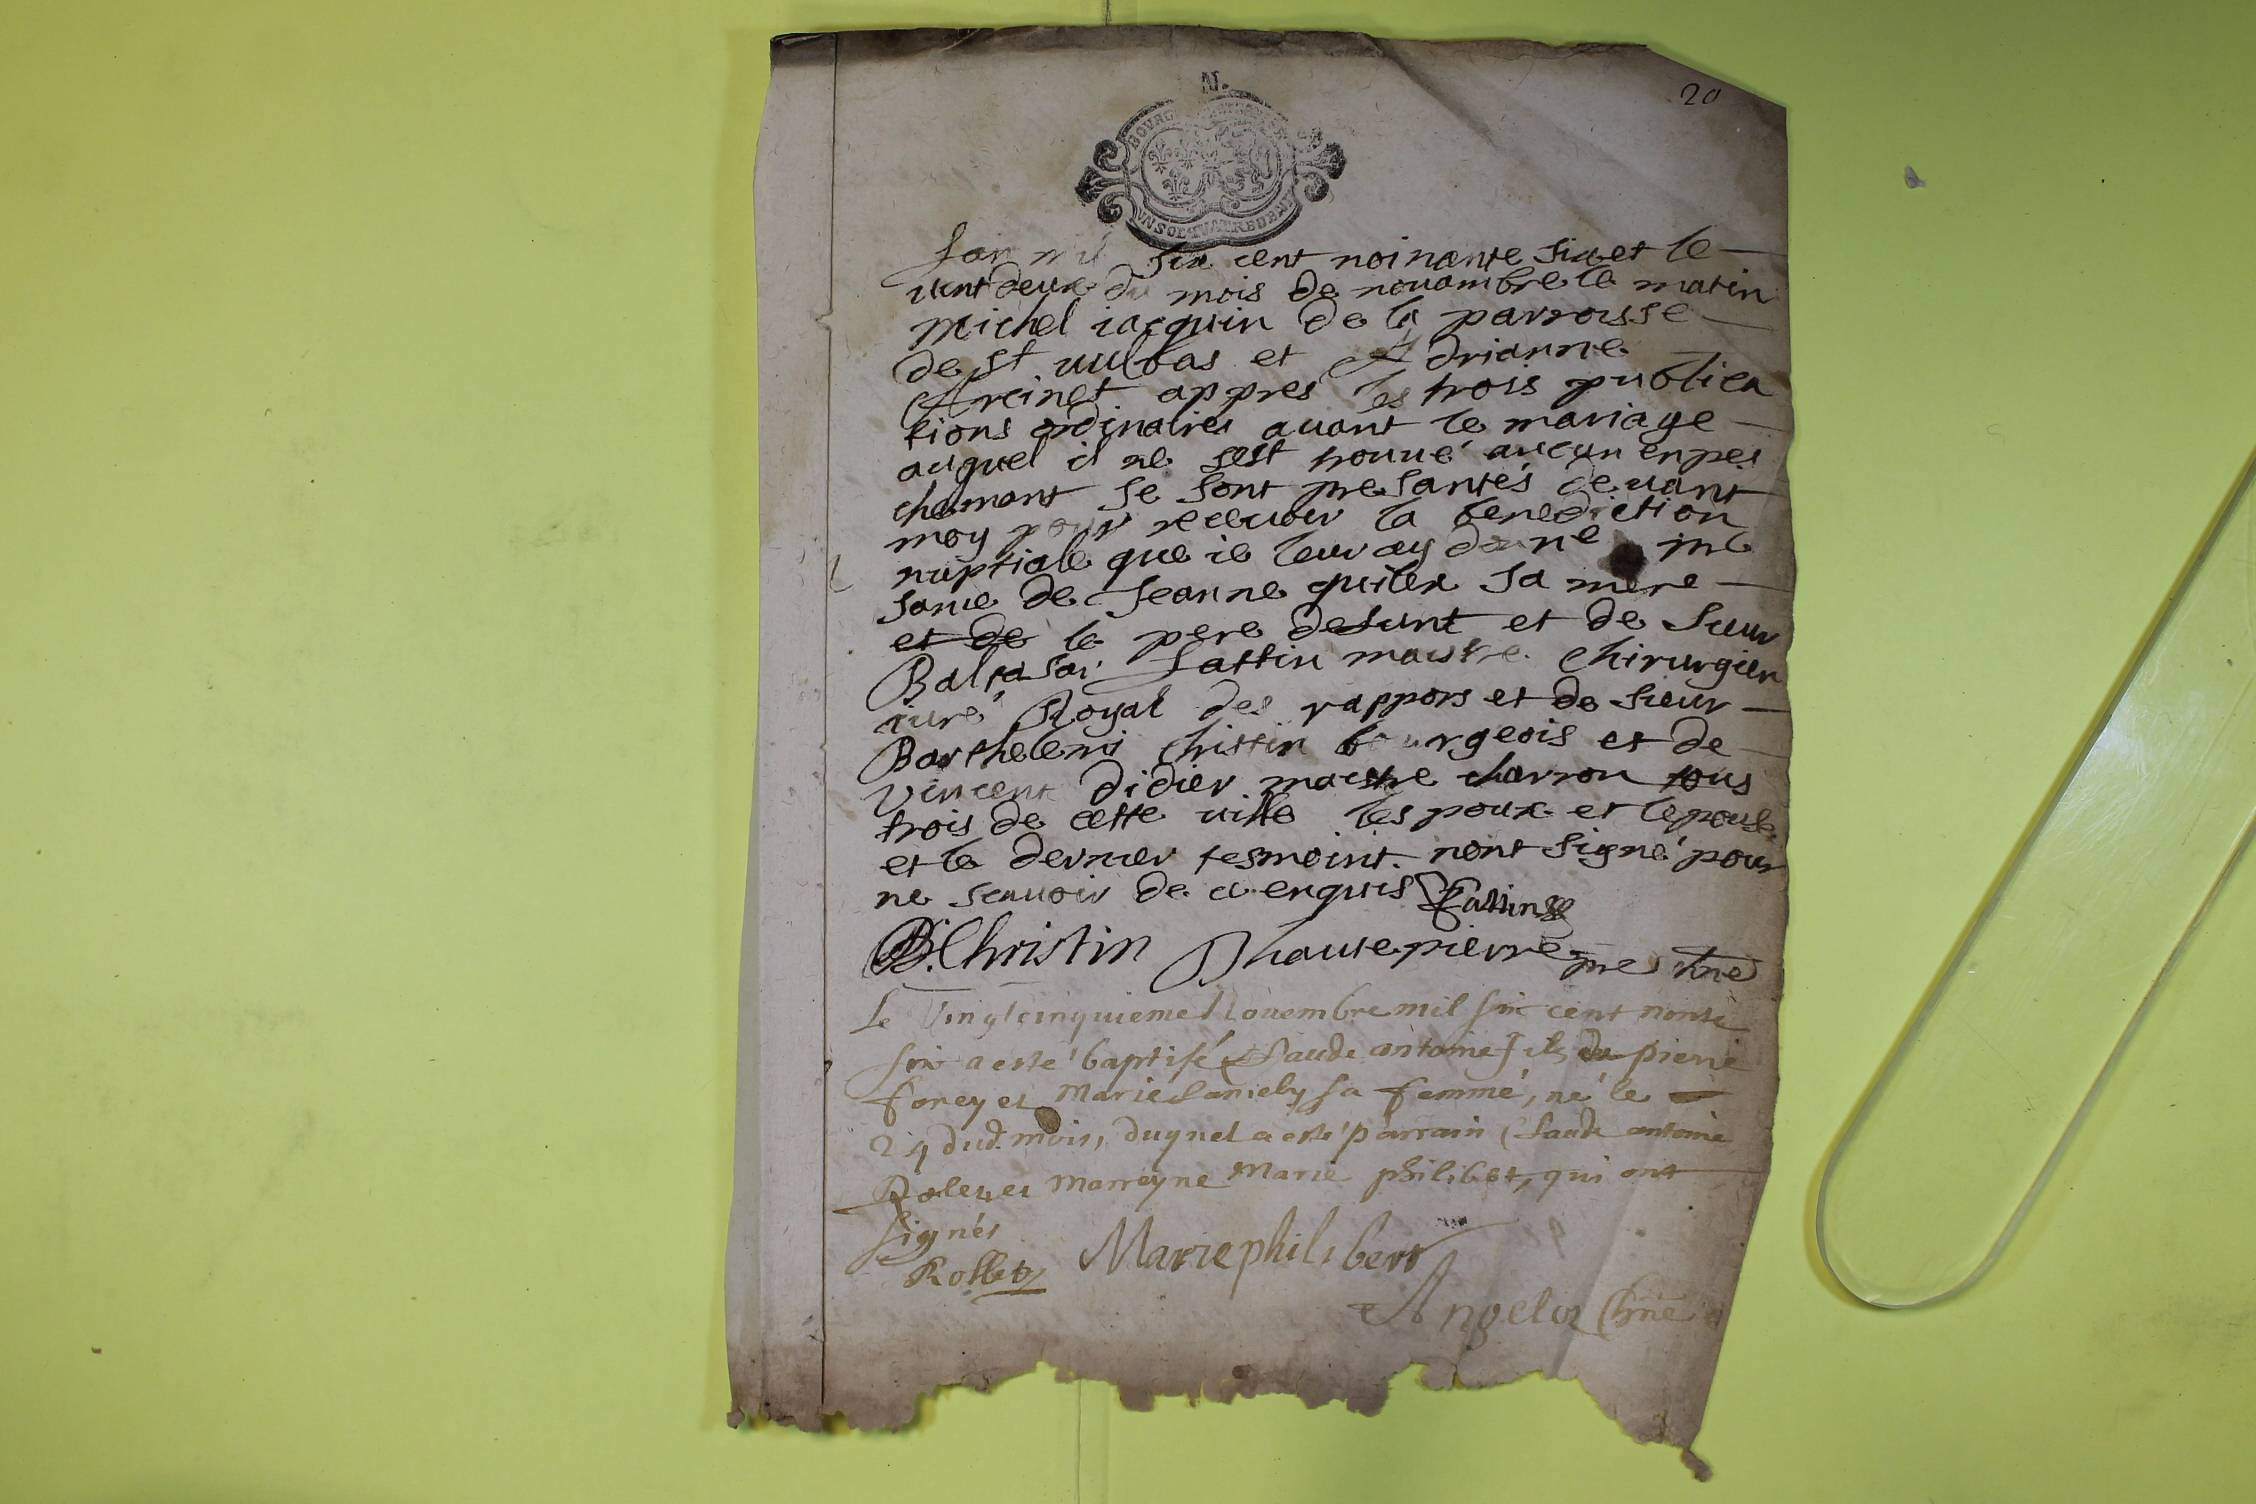 N.
20
BOURG
UN SOL QUATRE DEN
Lan mil six cent noinante six et le
vint deux du mois de nouambre le matin
michel iacquin de la parroisse
de st uulbas et Adrianne
Areinet appres les trois publica
tions ordinaires auant le mariage
auquel il ne sest trouué aucun enpes
chemant se sont presantés deuant
moy pour receuoir la benediction
nuptiale que ie leur ay donné
sance de Jeanne quilex sa mere
et de le pere defunt et de sieur
Baltasar Fattin maistre chirurgien
iuré Royal des rappors et de sieur
Barthelemi christin bourgeois et de
vincent didier maistre charron tous
trois de cette ville lespoux et lepouse
et le dernier tesmoint nont signé pour
ne scauoir de ce enquis Fattin
B. Christin Dhautepierre pre
Le Vingtcinquieme Nouembre mil six cent nonte
six a esté baptisé Claude antoine fils de pierre
forey et Marie sa femme, né le
24 dud. mois, duquel a esté parrain Claude antoine
Rolet et marreyne Marie philibet, qui ont
signés
Rollet Marie philibert
Angelot